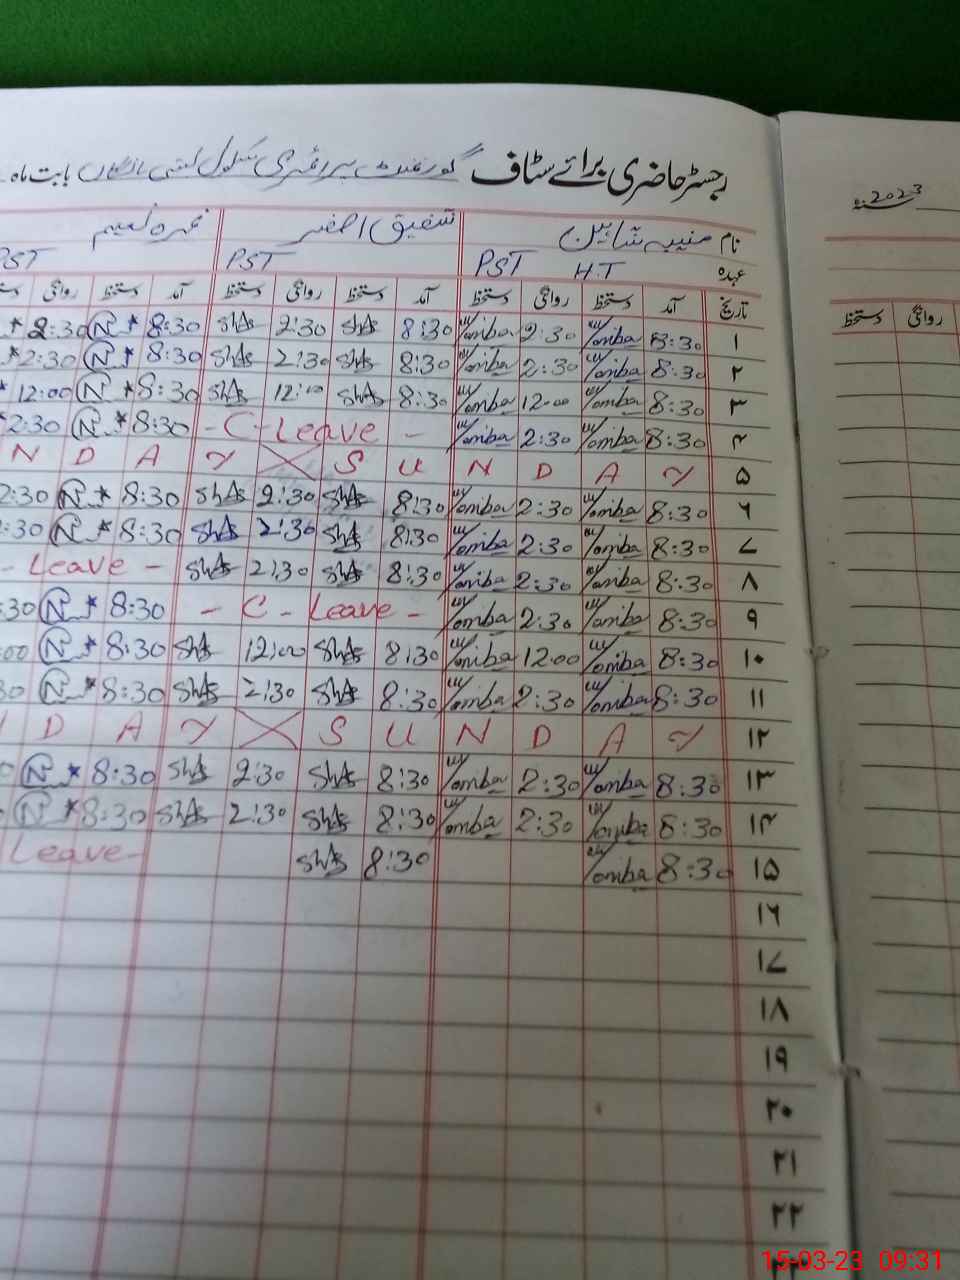 رجسٹر حاضری برائے سٹاف گورنمنٹ پرائمری سکول بابت ماہ
2023
نام منیبہ شاہین شفیق اصغر نمرہ نعیم
عہدہ H.T PST PST PST
تاریخ آمد دستخط روانگی دستخط آمد دستخط روانگی دستخط آمد دستخط روانگی دستخط
روانگی دستخط
۱ 8:30 2:30 8:30 Sha 2:30 Sha 8:30 N 2:30
۲ 8:30 2:30 8:30 Sha 2:30 Sha 8:30 N 2:30
۳ 8:30 12:00 8:30 Sha 12:00 Sha 8:30 N 12:00
۴ 8:30 2:30 - C - Leave - 8:30 N 2:30
۵ S U N D A Y S U N D A Y
۶ 8:30 2:30 8:30 Sha 2:30 Sha 8:30 N 2:30
۷ 8:30 2:30 8:30 Sha 2:30 Sha 8:30 N :30
۸ 8:30 2:30 8:30 Sha 2:30 Sha - Leave -
۹ 8:30 2:30 - C - Leave - 8:30 N :30
۱۰ 8:30 12:00 8:30 Sha 12:00 Sha 8:30 N :00
۱۱ 8:30 2:30 8:30 Sha 2:30 Sha 8:30 N 30
۱۲ S U N D A Y D A Y
۱۳ 8:30 2:30 8:30 Sha 2:30 Sha 8:30 N
۱۴ 8:30 2:30 8:30 Sha 2:30 Sha 8:30 N
۱۵ 8:30 8:30 Sha Leave -
۱۶
۱۷
۱۸
۱۹
۲۰
۲۱
۲۲
15-03-23 09:31